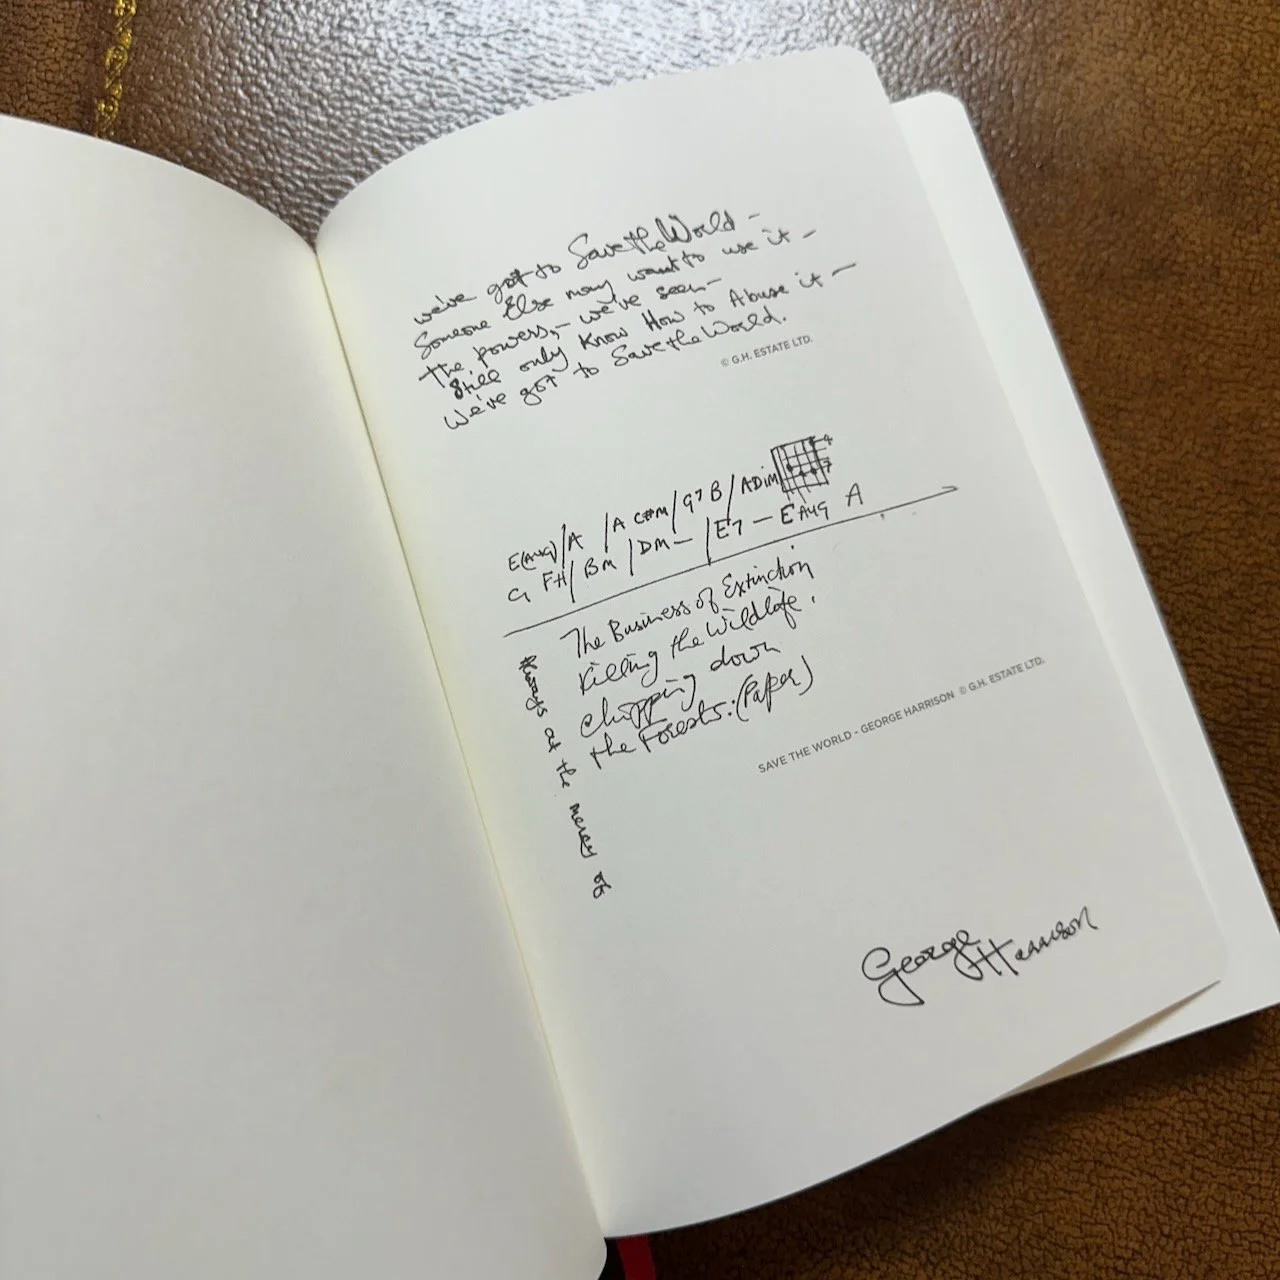 we've got to Save the World -
Someone Else may want to use it -
The powers,- we've seen-
Still only Know How to Abuse it -
We've got to Save the World.
© G.H. ESTATE LTD.
E(AUG)/A /A C#M/G7 B/ADiM
G F#/BM/DM-/E7-EAUG A
The Business of Extinction
Killing the Wildlife.
chopping down
the Forests:(Paper)
always at the mercy of
SAVE THE WORLD - GEORGE HARRISON © G.H. ESTATE LTD.
George Harrison